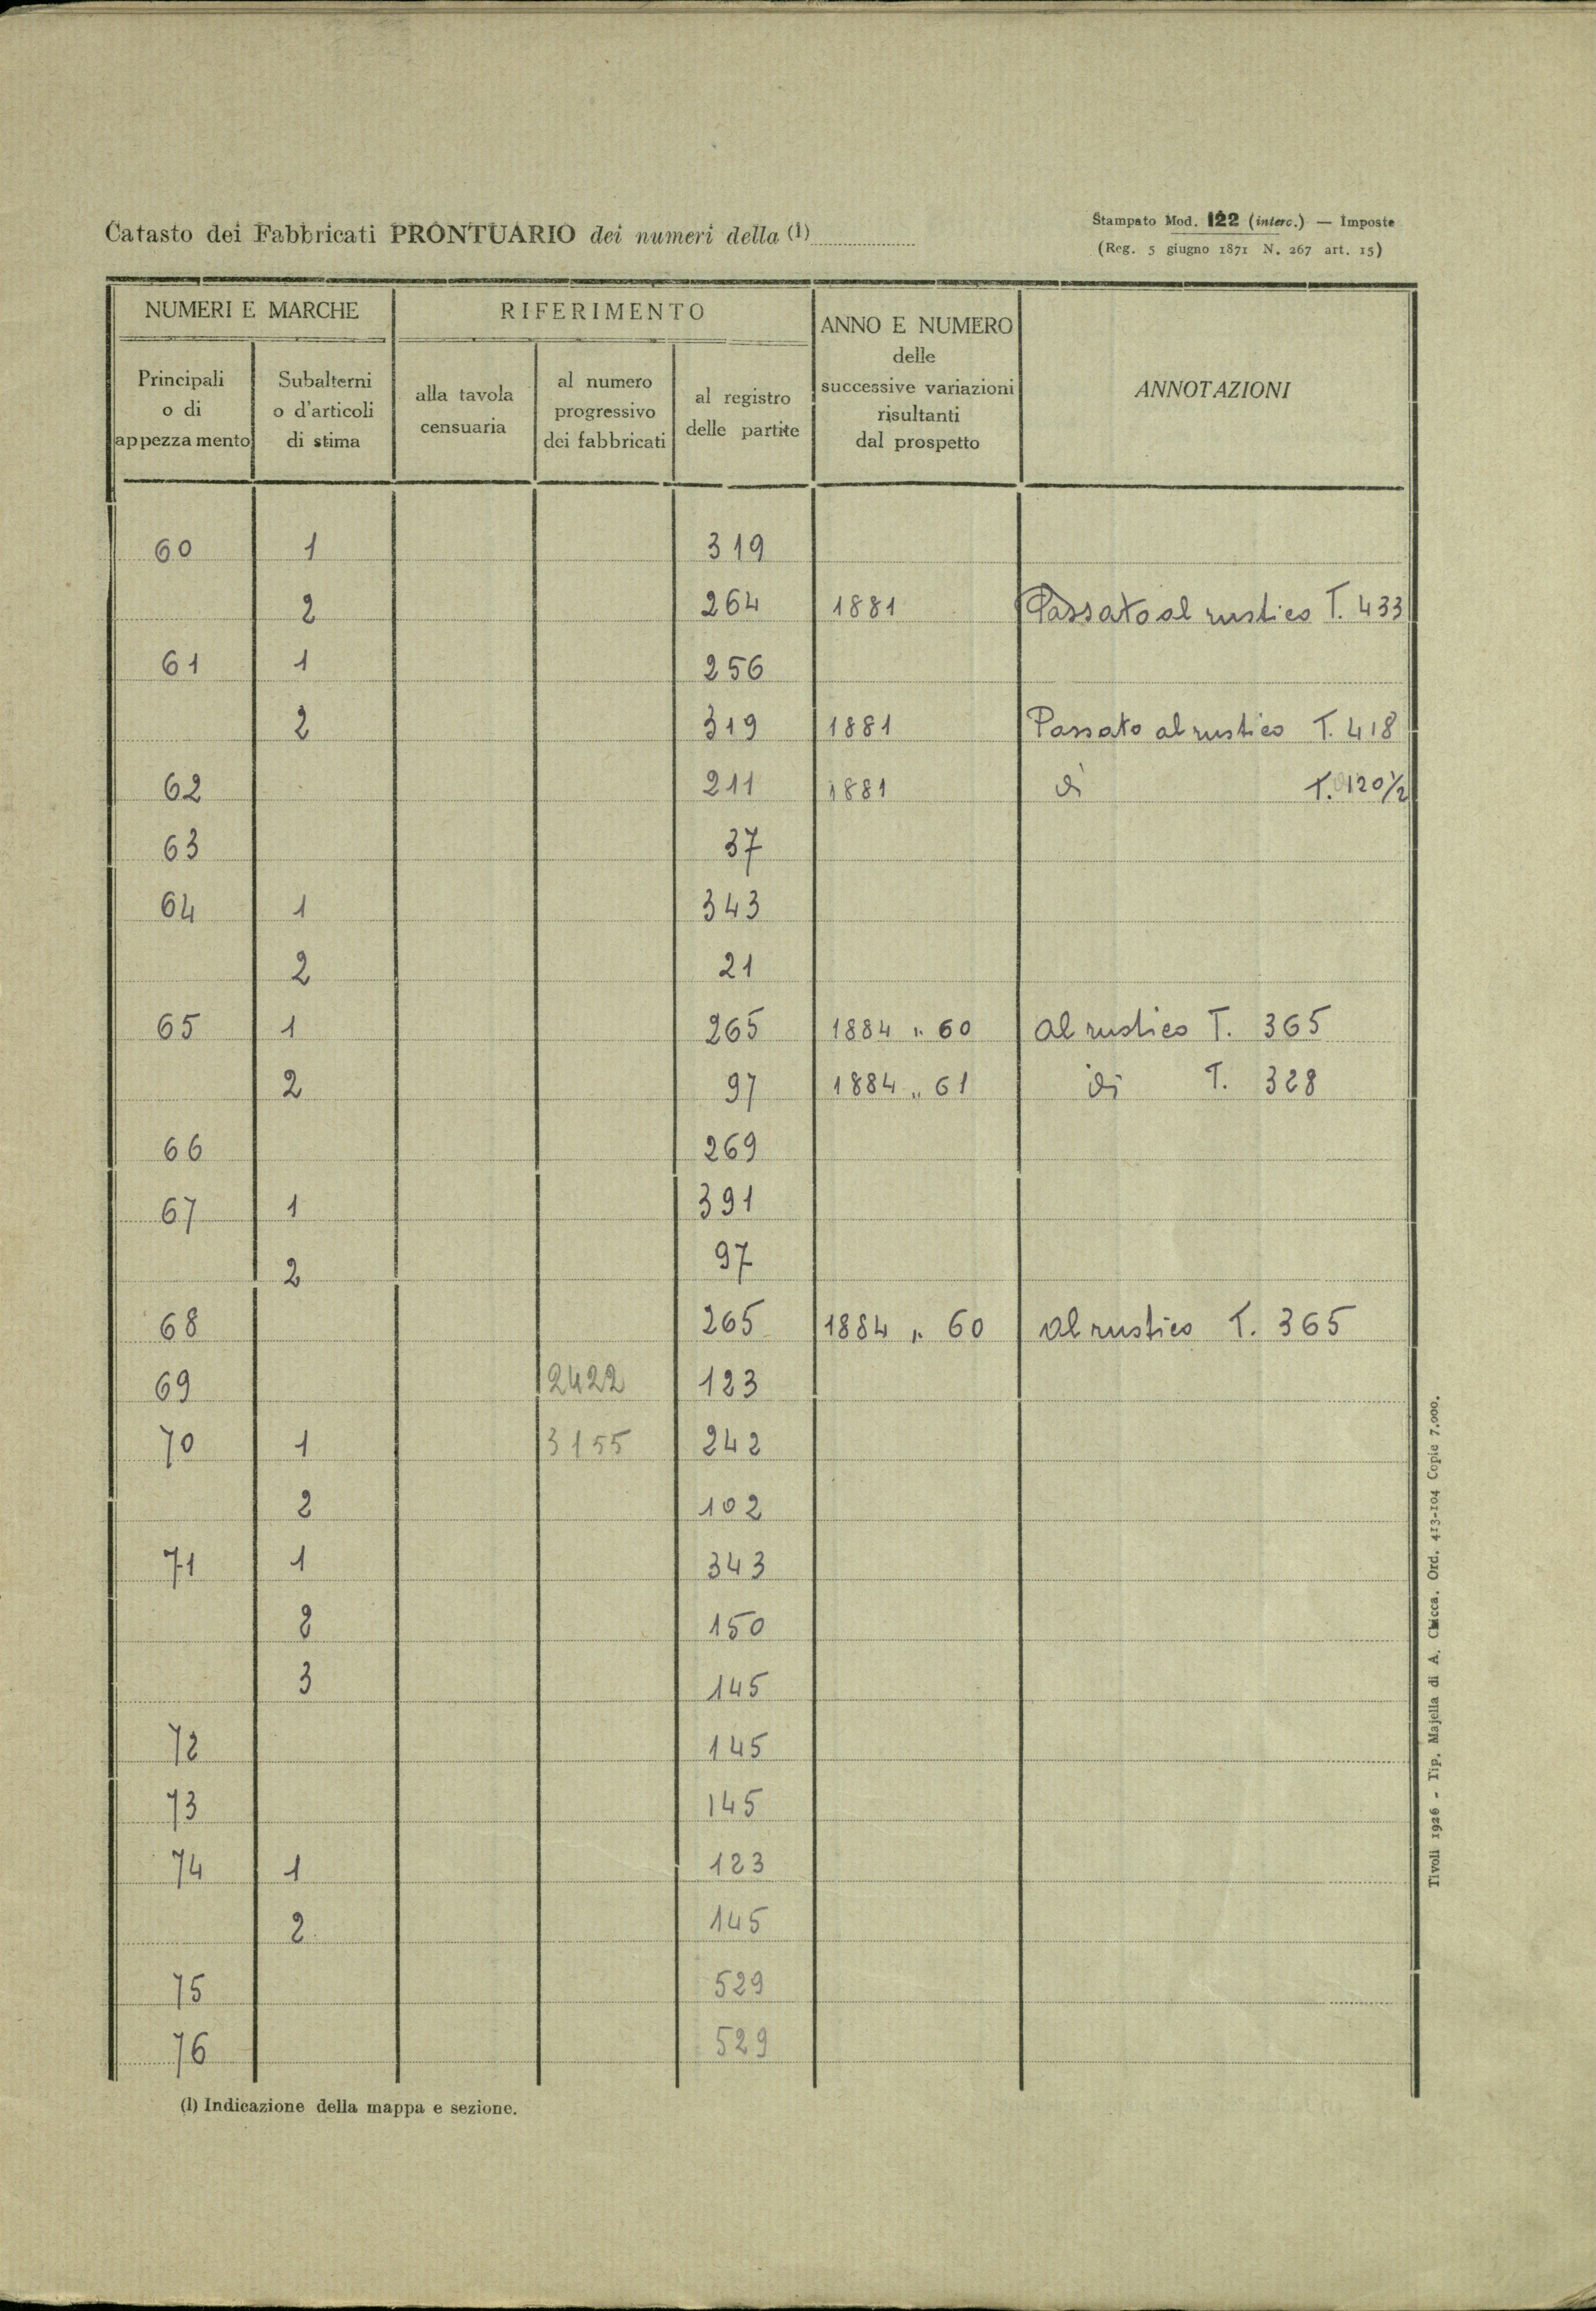 Catasto dei Fabbricati PRONTUARIO dei numeri della (1)
Stampato Mod. 122 (interc.) — Imposte
(Reg. 5 giugno 1871 N. 267 art. 15)
NUMERI E MARCHE
RIFERIMENTO
ANNO E NUMERO
delle
successive variazioni
risultanti
dal prospetto
ANNOTAZIONI
Principali
o di
appezzamento
Subalterni
o d'articoli
di stima
alla tavola
censuaria
al numero
progressivo
dei fabbricati
al registro
delle partite
60 1 319
2 264 1881 Passato al rustico T. 433
61 1 256
2 319 1881 Passato al rustico T. 418
62 211 1881 di T. 120 1/2
63 37
64 1 343
2 21
65 1 265 1884 „ 60 al rustico T. 365
2 97 1884 „ 61 di T. 328
66 269
67 1 391
2 97
68 265 1884 „ 60 al rustico T. 365
69 2422 123
70 1 3155 242
2 102
71 1 343
2 150
3 145
72 145
73 145
74 1 123
2 145
75 529
76 529
(1) Indicazione della mappa e sezione.
Tivoli 1926 - Tip. Majella di A. Chicca. Ord. 413-104 Copie 7.000.